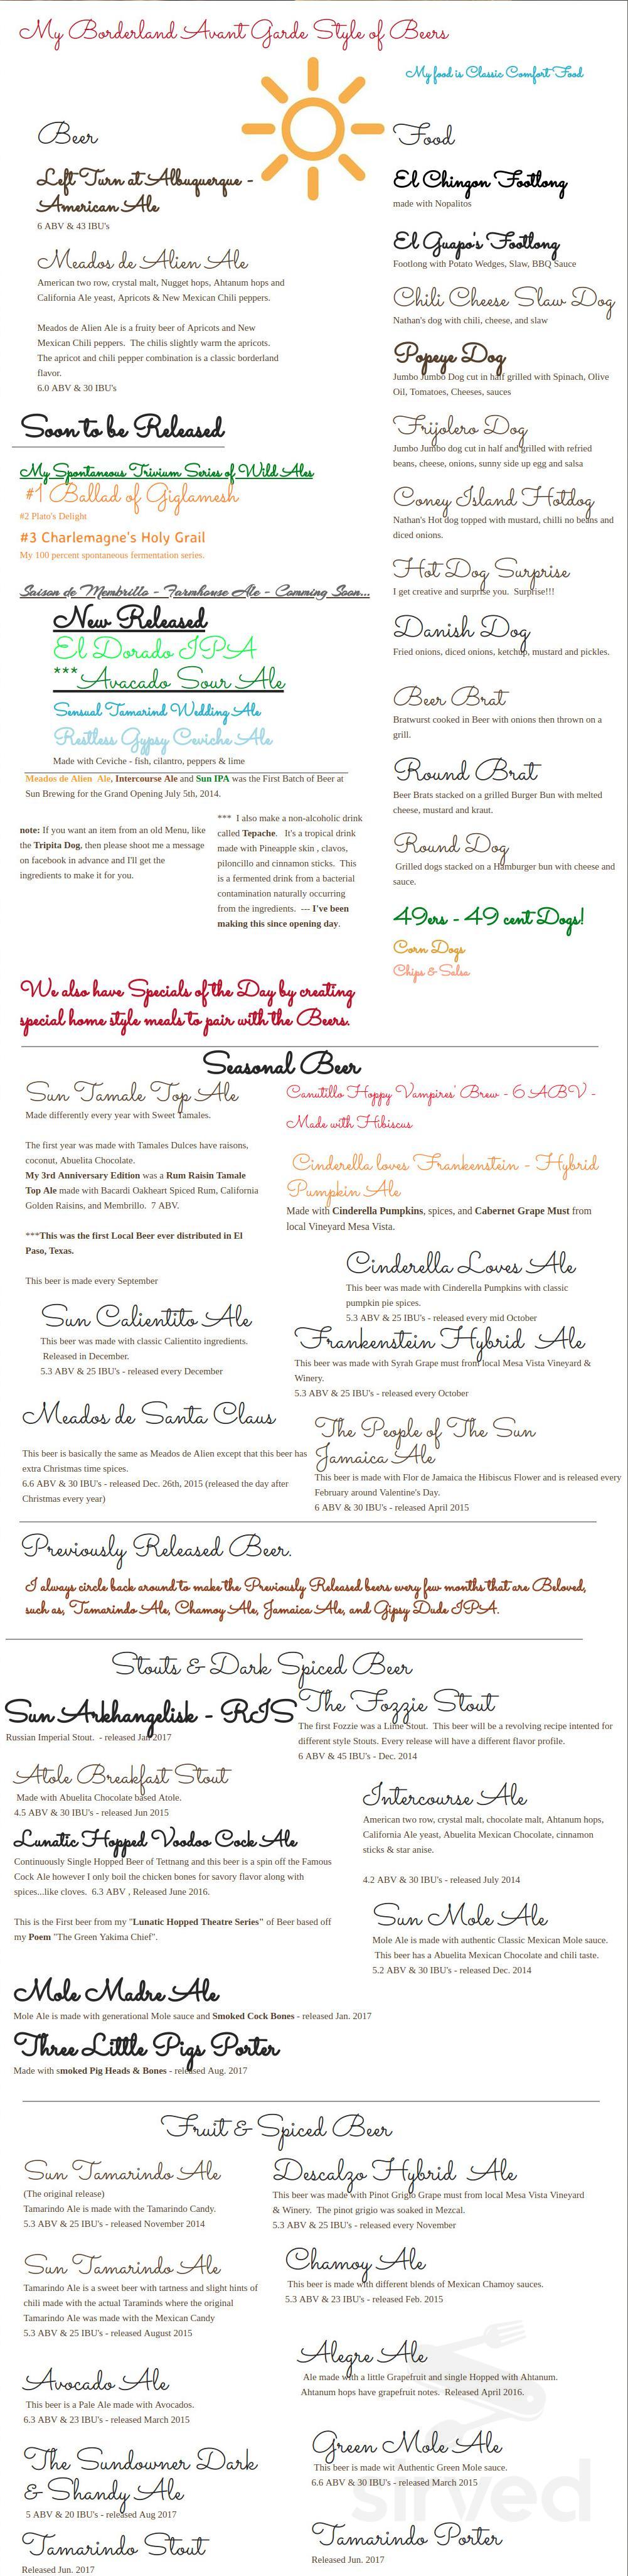 My Borderland Avant Garde Style of Beers
My food is Classic Comfort Food
Beer
Left Turn at Albuquerque -
American Ale
6 ABV & 43 IBU's
Meados de Alien Ale
American two row, crystal malt, Nugget hops, Ahtanum hops and
California Ale yeast, Apricots & New Mexican Chili peppers.
Meados de Alien Ale is a fruity beer of Apricots and New
Mexican Chili peppers. The chilis slightly warm the apricots.
The apricot and chili pepper combination is a classic borderland
flavor.
6.0 ABV & 30 IBU's
Soon to be Released
My Spontaneous Trivium Series of Wild Ales
#1 Ballad of Giglamesh
#2 Plato's Delight
#3 Charlemagne's Holy Grail
My 100 percent spontaneous fermentation series.
Saison de Membrillo - Farmhouse Ale - Comming Soon...
New Released
El Dorado IPA
***Avacado Sour Ale
Sensual Tamarind Wedding Ale
Restless Gypsy Ceviche Ale
Made with Ceviche - fish, cilantro, peppers & lime
Meados de Alien Ale, Intercourse Ale and Sun IPA was the First Batch of Beer at
Sun Brewing for the Grand Opening July 5th, 2014.
note: If you want an item from an old Menu, like
the Tripita Dog, then please shoot me a message
on facebook in advance and I'll get the
ingredients to make it for you.
*** I also make a non-alcoholic drink
called Tepache. It's a tropical drink
made with Pineapple skin , clavos,
piloncillo and cinnamon sticks. This
is a fermented drink from a bacterial
contamination naturally occurring
from the ingredients. --- I've been
making this since opening day.
We also have Specials of the Day by creating
special home style meals to pair with the Beers.
Food
El Chingon Footlong
made with Nopalitos
El Guapo's Footlong
Footlong with Potato Wedges, Slaw, BBQ Sauce
Chili Cheese Slaw Dog
Nathan's dog with chili, cheese, and slaw
Popeye Dog
Jumbo Jumbo Dog cut in half grilled with Spinach, Olive
Oil, Tomatoes, Cheeses, sauces
Frijolero Dog
Jumbo Jumbo dog cut in half and grilled with refried
beans, cheese, onions, sunny side up egg and salsa
Coney Island Hotdog
Nathan's Hot dog topped with mustard, chilli no beans and
diced onions.
Hot Dog Surprise
I get creative and surprise you. Surprise!!!
Danish Dog
Fried onions, diced onions, ketchup, mustard and pickles.
Beer Brat
Bratwurst cooked in Beer with onions then thrown on a
grill.
Round Brat
Beer Brats stacked on a grilled Burger Bun with melted
cheese, mustard and kraut.
Round Dog
Grilled dogs stacked on a Hamburger bun with cheese and
sauce.
49ers - 49 cent Dogs!
Corn Dogs
Chips & Salsa
Seasonal Beer
Sun Tamale Top Ale
Made differently every year with Sweet Tamales.
The first year was made with Tamales Dulces have raisons,
coconut, Abuelita Chocolate.
My 3rd Anniversary Edition was a Rum Raisin Tamale
Top Ale made with Bacardi Oakheart Spiced Rum, California
Golden Raisins, and Membrillo. 7 ABV.
***This was the first Local Beer ever distributed in El
Paso, Texas.
This beer is made every September
Sun Calientito Ale
This beer was made with classic Calientito ingredients.
Released in December.
5.3 ABV & 25 IBU's - released every December
Meados de Santa Claus
This beer is basically the same as Meados de Alien except that this beer has
extra Christmas time spices.
6.6 ABV & 30 IBU's - released Dec. 26th, 2015 (released the day after
Christmas every year)
Canutillo Hoppy Vampires' Brew - 6 ABV -
Made with Hibiscus
Cinderella loves Frankenstein - Hybrid
Pumpkin Ale
Made with Cinderella Pumpkins, spices, and Cabernet Grape Must from
local Vineyard Mesa Vista.
Cinderella Loves Ale
This beer was made with Cinderella Pumpkins with classic
pumpkin pie spices.
5.3 ABV & 25 IBU's - released every mid October
Frankenstein Hybrid Ale
This beer was made with Syrah Grape must from local Mesa Vista Vineyard &
Winery.
5.3 ABV & 25 IBU's - released every October
The People of The Sun
Jamaica Ale
This beer is made with Flor de Jamaica the Hibiscus Flower and is released every
February around Valentine's Day.
6 ABV & 30 IBU's - released April 2015
Previously Released Beer.
I always circle back around to make the Previously Released beers every few months that are Beloved,
such as, Tamarindo Ale, Chamoy Ale, Jamaica Ale, and Gipsy Dude IPA.
Stouts & Dark Spiced Beer
Sun Arkhangelisk - RIS
Russian Imperial Stout. - released Jan 2017
Atole Breakfast Stout
Made with Abuelita Chocolate based Atole.
4.5 ABV & 30 IBU's - released Jun 2015
Lunatic Hopped Voodoo Cock Ale
Continuously Single Hopped Beer of Tettnang and this beer is a spin off the Famous
Cock Ale however I only boil the chicken bones for savory flavor along with
spices...like cloves. 6.3 ABV , Released June 2016.
This is the First beer from my "Lunatic Hopped Theatre Series" of Beer based off
my Poem "The Green Yakima Chief".
Mole Madre Ale
Mole Ale is made with generational Mole sauce and Smoked Cock Bones - released Jan. 2017
Three Little Pigs Porter
Made with smoked Pig Heads & Bones - released Aug. 2017
The Fozzie Stout
The first Fozzie was a Lime Stout. This beer will be a revolving recipe intented for
different style Stouts. Every release will have a different flavor profile.
6 ABV & 45 IBU's - Dec. 2014
Intercourse Ale
American two row, crystal malt, chocolate malt, Ahtanum hops,
California Ale yeast, Abuelita Mexican Chocolate, cinnamon
sticks & star anise.
4.2 ABV & 30 IBU's - released July 2014
Sun Mole Ale
Mole Ale is made with authentic Classic Mexican Mole sauce.
This beer has a Abuelita Mexican Chocolate and chili taste.
5.2 ABV & 30 IBU's - released Dec. 2014
Fruit & Spiced Beer
Sun Tamarindo Ale
(The original release)
Tamarindo Ale is made with the Tamarindo Candy.
5.3 ABV & 25 IBU's - released November 2014
Sun Tamarindo Ale
Tamarindo Ale is a sweet beer with tartness and slight hints of
chili made with the actual Taraminds where the original
Tamarindo Ale was made with the Mexican Candy
5.3 ABV & 25 IBU's - released August 2015
Avocado Ale
This beer is a Pale Ale made with Avocados.
6.3 ABV & 23 IBU's - released March 2015
The Sundowner Dark
& Shandy Ale
5 ABV & 20 IBU's - released Aug 2017
Tamarindo Stout
Released Jun. 2017
Descalzo Hybrid Ale
This beer was made with Pinot Grigio Grape must from local Mesa Vista Vineyard
& Winery. The pinot grigio was soaked in Mezcal.
5.3 ABV & 25 IBU's - released every November
Chamoy Ale
This beer is made with different blends of Mexican Chamoy sauces.
5.3 ABV & 23 IBU's - released Feb. 2015
Alegre Ale
Ale made with a little Grapefruit and single Hopped with Ahtanum.
Ahtanum hops have grapefruit notes. Released April 2016.
Green Mole Ale
This beer is made wit Authentic Green Mole sauce.
6.6 ABV & 30 IBU's - released March 2015
Tamarindo Porter
Released Jun. 2017
sirved